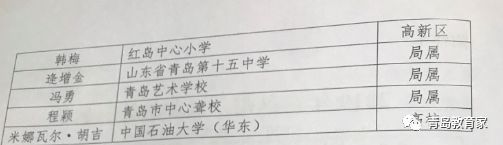 韩梅 红岛中心小学 高新区
逄增金 山东省青岛第十五中学 局属
冯勇 青岛艺术学校 局属
程颖 青岛市中心聋校 局属
米娜瓦尔·胡吉 中国石油大学（华东） 高校
青岛教育家